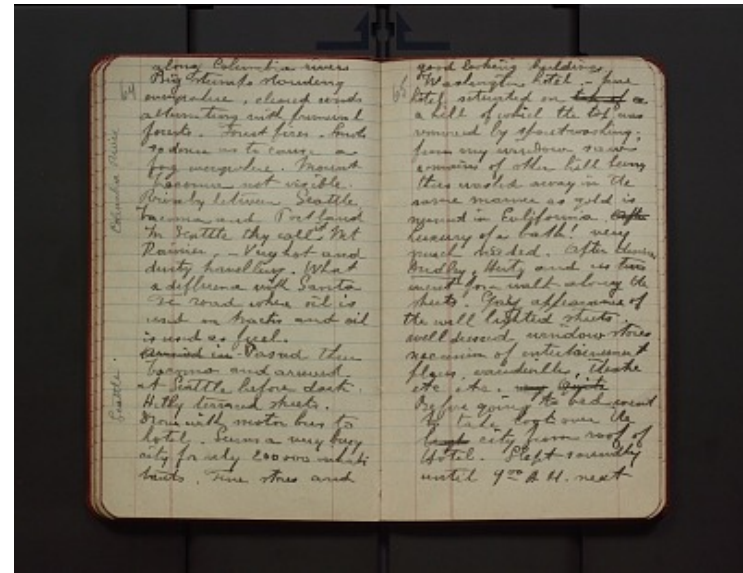 64
Columbia River
Seattle.
along Columbia rivers
Big stumps standing
everywhere, cleared lands
alternating with primeval
forests. Forest fires. Smoke
so dense as to cause a
fog everywhere. Mount
Tacoma not visible.
Rivalry between Seattle
Tacoma and Portland
In Seattle they call Mt
Rainier. - Very hot and
dusty travelling. What
a difference with Santa
Fe road where oil is
used on tracks and oil
is used as fuel.
arrived in Passed thru
Tacoma and arrived
at Seattle before dark.
Hilly terraced streets.
Drove with motor bus to
hotel. Seems a very busy
city for only 200000 inhabi
tants. Fine stores and
65
good looking buildings
Washington hotel - fine
hotel situated on top of a
a hill of which the top was
removed by spout washing,
from my window saw
remains of other hill being
thus washed away in the
same manner as gold is
mined in California. After
Luxury of a bath! very
much needed. After dinner
Dudley, Hertz and us two
went for a walk along the
streets. Gay appearance of
the well lighted streets.
well dressed, window stores
succession of entertainment
places, vaudeville, theatre
etc etc.
Before going to bed went
to take look over the
city from roof of
Hotel. Slept soundly
until 9 00 A.M. next